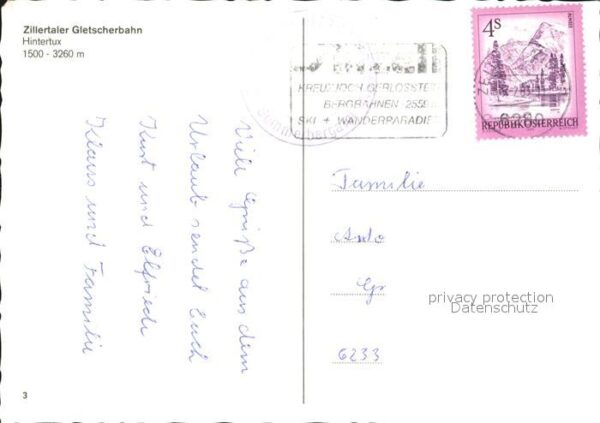 Zillertaler Gletscherbahn
Hintertux
1500 - 3260 m
KREUZJOCH GERLOSSTEIN
BERGBAHNEN 2559
SKI + WANDERPARADIES
Sommerberg
4S
REPUBLIK ÖSTERREICH
ZELL
6280
Viele Grüße aus dem
Urlaub sendet Euch
Kurt und Elfriede
Klaus und Familie
Familie
6233
privacy protection
Datenschutz
3